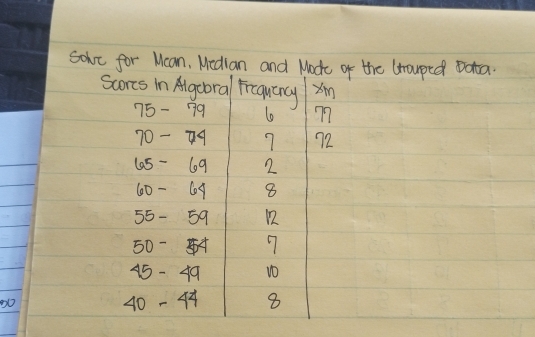 Solve for Mean, Median and Mode of the Grouped Data.
Scores in Algebra Frequency Xm
75 - 79 6 77
70 - 74 7 72
65 - 69 2
60 - 64 8
55 - 59 12
50 - 54 7
45 - 49 10
40 - 44 8